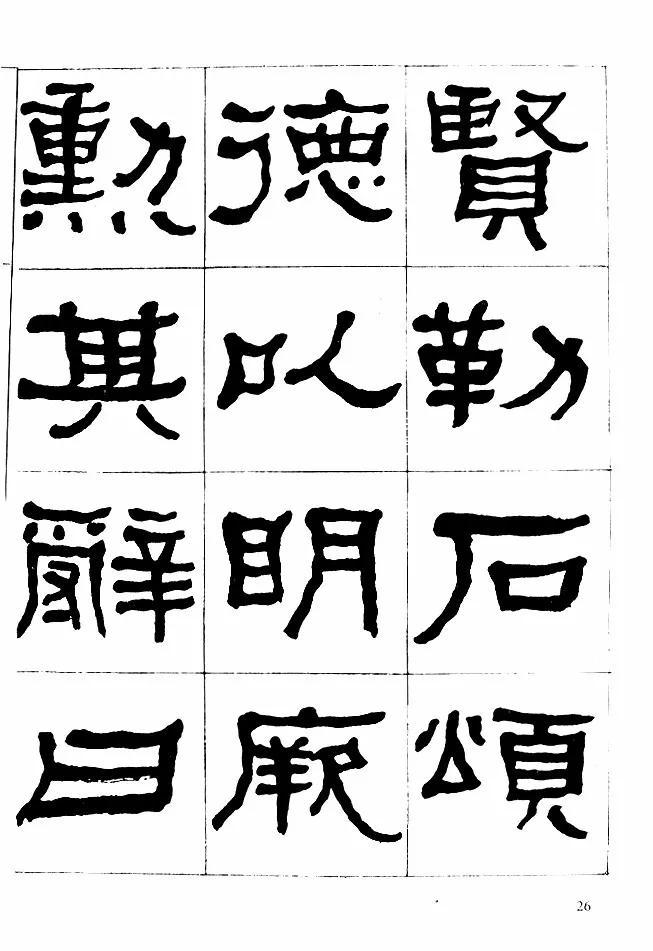 賢勒石頌
德以明厥
勳其辭曰
26